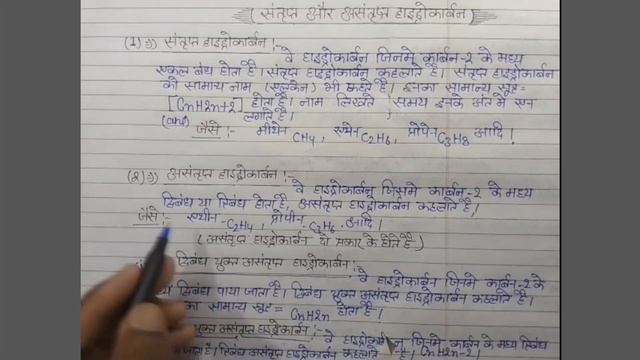 ( संतृप्त और असंतृप्त हाइड्रोकार्बन )
(1) संतृप्त हाइड्रोकार्बन :-
वे हाइड्रोकार्बन जिनमे कार्बन-2 के मध्य
एकल बंध होता है। संतृप्त हाइड्रोकार्बन कहलाते है। संतृप्त हाइड्रोकार्बन
को सामान्य नाम (एल्केन) भी कहते है। इनका सामान्य सूत्र=
[CnH2n+2] होता है। नाम लिखते समय इनके अंत मे एन
(ane) लगाते है।
जैसे :- मीथेन CH4, एथेन C2H6, प्रोपेन C3H8 आदि।
(2) असंतृप्त हाइड्रोकार्बन :-
वे हाइड्रोकार्बन जिसमे कार्बन-2 के मध्य
द्विबंध या त्रिबंध होता है, असंतृप्त हाइड्रोकार्बन कहलाते है।
जैसे :- एथीन-C2H4, प्रोपीन-C3H6 आदि।
(असंतृप्त हाइड्रोकार्बन दो प्रकार के होते है)
द्विबंध युक्त असंतृप्त हाइड्रोकार्बन :-
वे हाइड्रोकार्बन जिनमे कार्बन-2 के
द्विबंध पाया जाता है। द्विबंध युक्त असंतृप्त हाइड्रोकार्बन कहलाते है।
का सामान्य सूत्र= CnH2n होता है।
युक्त असंतृप्त हाइड्रोकार्बन :- वे हाइड्रोकार्बन जिनमे कार्बन के मध्य त्रिबंध
जाता है। त्रिबंध युक्त असंतृप्त हाइड्रोकार्बन कहलाते है। CnH2n-2